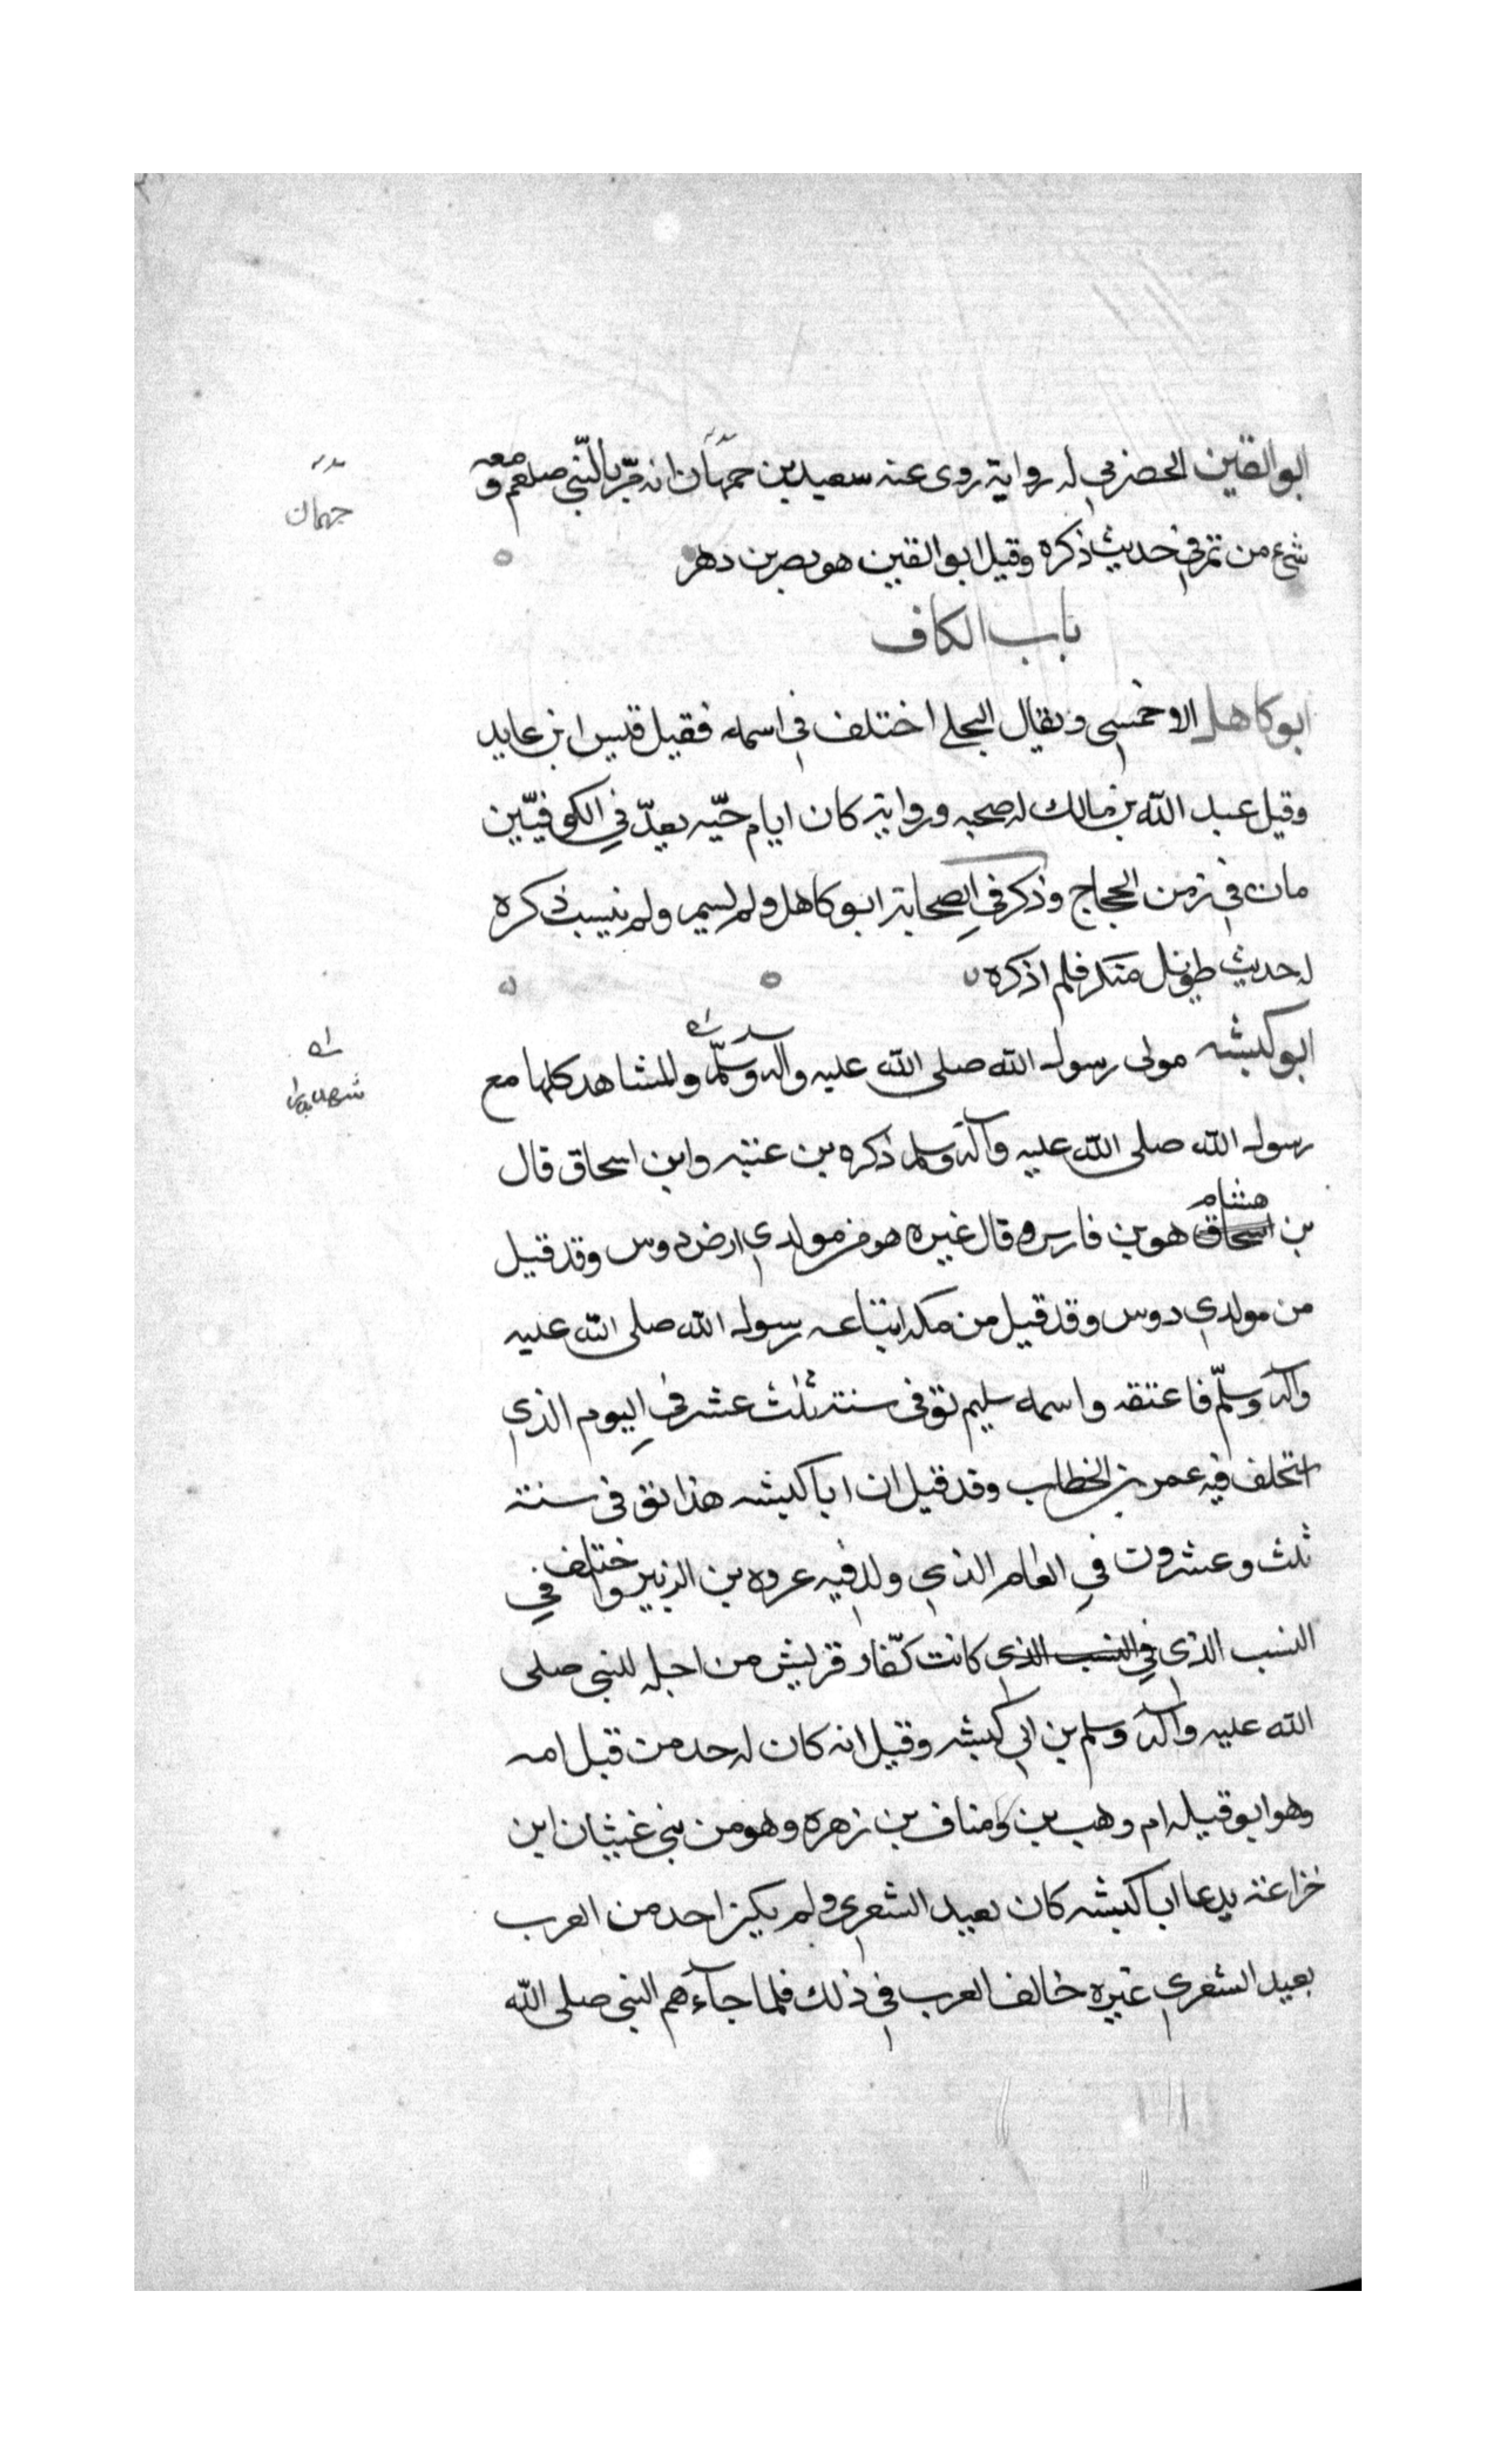 ابو القين الحضرمي له رواية روى عنه سعيد بن حمهان انه مرّ بالنّبي صلعم و معه
شيء من تمر في حديث ذكره وقيل ابو القين هو نصر بن دهر
باب الكاف
ابو كاهل الاحمسي ويقال البجلي اختلف في اسمه فقيل قيس ابن عايد
وقيل عبد الله بن مالك له صحبه ورواية كان ايام حيّه يعدّ في الكوفيّين
مات في زمن الحجاج وذكر في الصحابة ابو كاهل ولم يسم ولم ينسب ذكره
له حديث طويل منكر فلم اذكره
ابو كبشه مولى رسول الله صلى الله عليه وآله وسلّم والمشاهد كلها مع
رسول الله صلى الله عليه وآله وسلم ذكره بن عقبه وابن اسحاق قال
بن هشام هو من فارس وقال غيره هو من مولدي ارض دوس وقد قيل
من مولدي دوس وقد قيل من مكه ابتاعه رسول الله صلى الله عليه
وآله وسلّم فاعتقه واسمه سليم توفى سنة ثلث عشر في اليوم الذي
استخلف فيه عمر بن الخطاب وقد قيل ان ابا كبشه هذا توفى سنة
ثلث وعشرون في العام الذي ولد فيه عروه بن الزبير واختلف في
النسب الذي في النسب الذي كانت كفّار قريش من اجله للنبي صلى
الله عليه وآله وسلم بن ابي كبشه وقيل انه كان له جد من قبل امه
وهو ابو قيله ام وهب بن مناف بن زهره وهو من بني غبشان ابن
خزاعة يدعا ابا كبشه كان يعبد الشعرى ولم يكن احد من العرب
يعبد الشعرى غيره خالف العرب في ذلك فلما جآءهم النبي صلى الله
جهمان
شهد بدرا